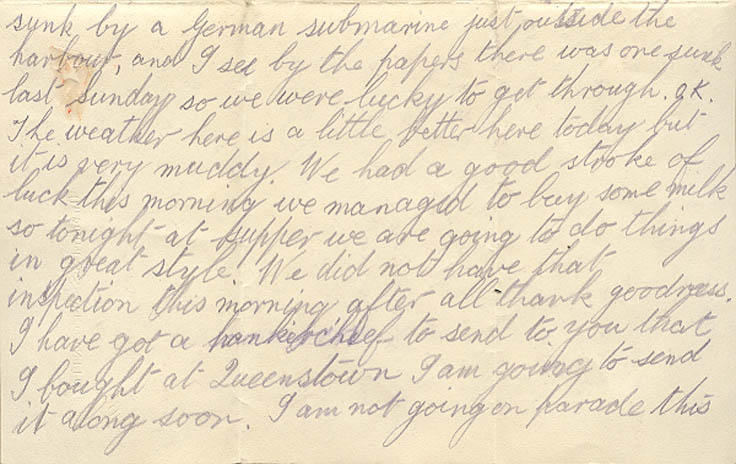 sunk by a German submarine just outside the
harbour, and I see by the papers there was one sunk
last sunday so we were lucky to get through. O.K.
The weather here is a little better here today but
it is very muddy. We had a good stroke of
luck this morning we managed to buy some milk
so tonight at supper we are going to do things
in great style. We did not have that
inspection this morning after all thank goodness.
I have got a hankerchief to send to you that
I bought at Queenstown I am going to send
it along soon. I am not going on parade this